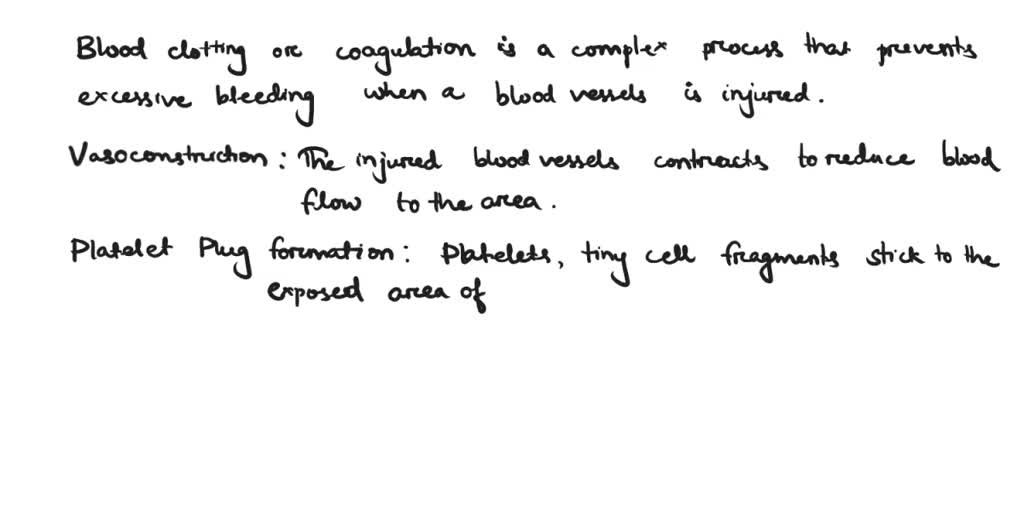 Blood clotting or coagulation is a complex process that prevents
excessive bleeding when a blood vessels is injured.
Vasoconstruction: The injured blood vessels contracts to reduce blood
flow to the area.
Platelet Plug formation: Platelets, tiny cell fragments stick to the
exposed area of